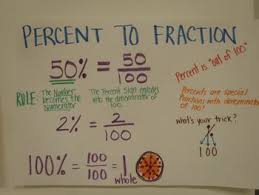 PERCENT TO FRACTION
50% = 50/100
Percent is "out of 100"
RULE: The Number becomes the Numerator
The Percent Sign
into the denominator of 100.
Percents are special
fractions with denominator
of 100!
2% = 2/100
what's your trick?
100
100% = 100/100 = 1/1 whole